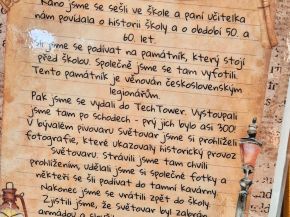 Ráno jsme se sešli ve škole a paní učitelka
nám povídala o historii školy a o období 50. a
60. let.
Šli jsme se podívat na památník, který stojí
před školou. Společně jsme se tam vyfotili.
Tento památník je věnován československým
legionářům.
Pak jsme se vydali do TechTower. Vystoupali
jsme tam po schodech - prý jich bylo asi 300!
V bývalém pivovaru Světovar jsme si prohlíželi
fotografie, které ukazovaly historický provoz
Světovaru. Strávili jsme tam chvíli
prohlížením, udělali jsme si společné fotky a
někteří se šli podívat do tamní kavárny.
Nakonec jsme se vrátili zpět do školy.
Zjistili jsme, že Světovar byl zabrán
armádou a